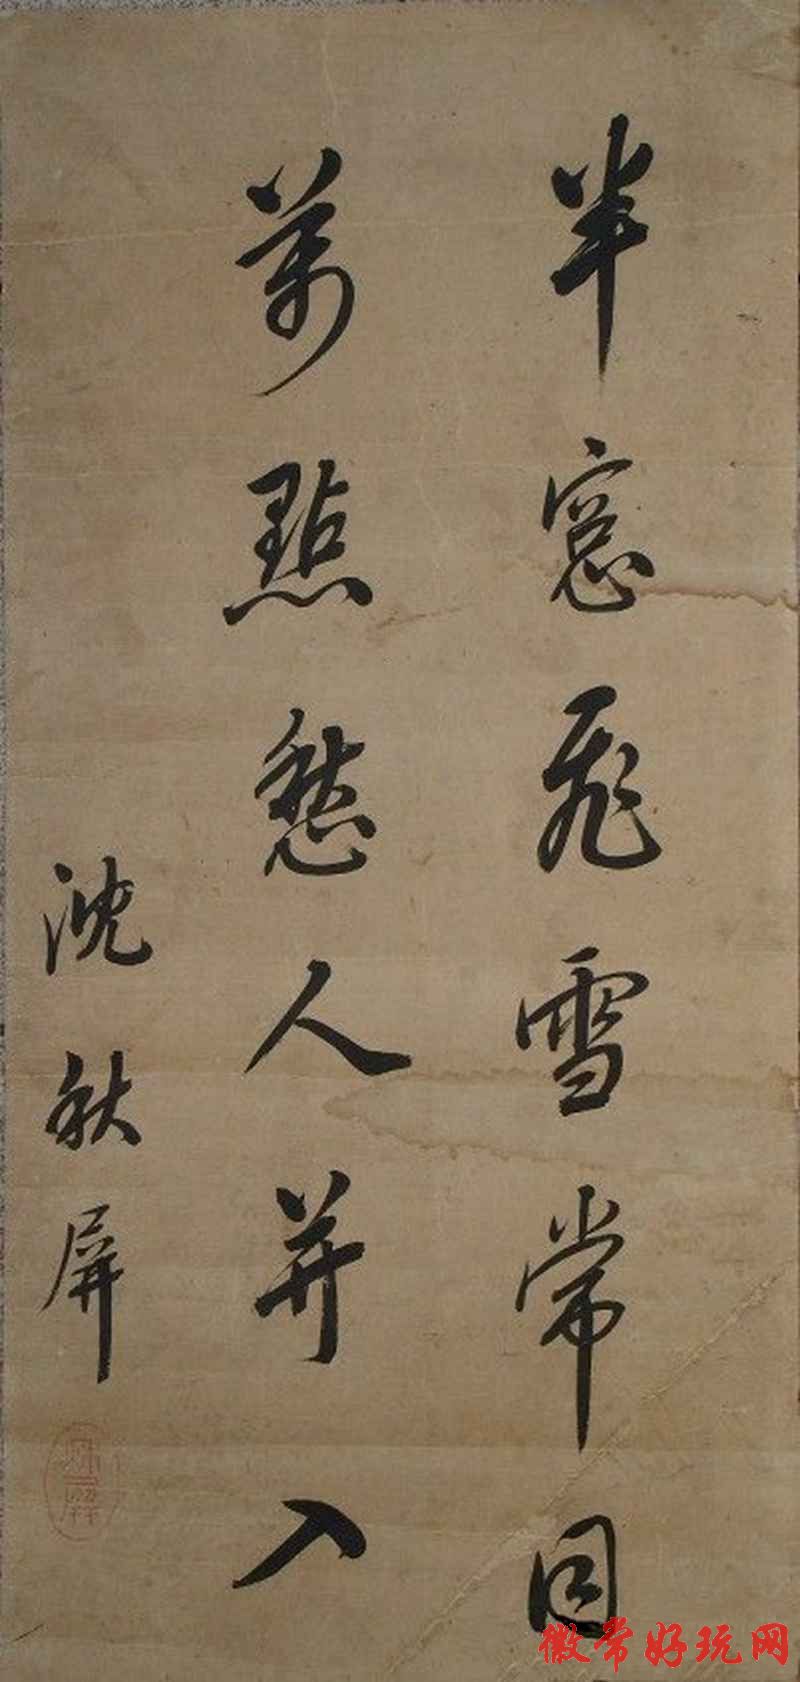 半窻飛雪常
萬點愁人并入
沈秋屏
徽常好玩网